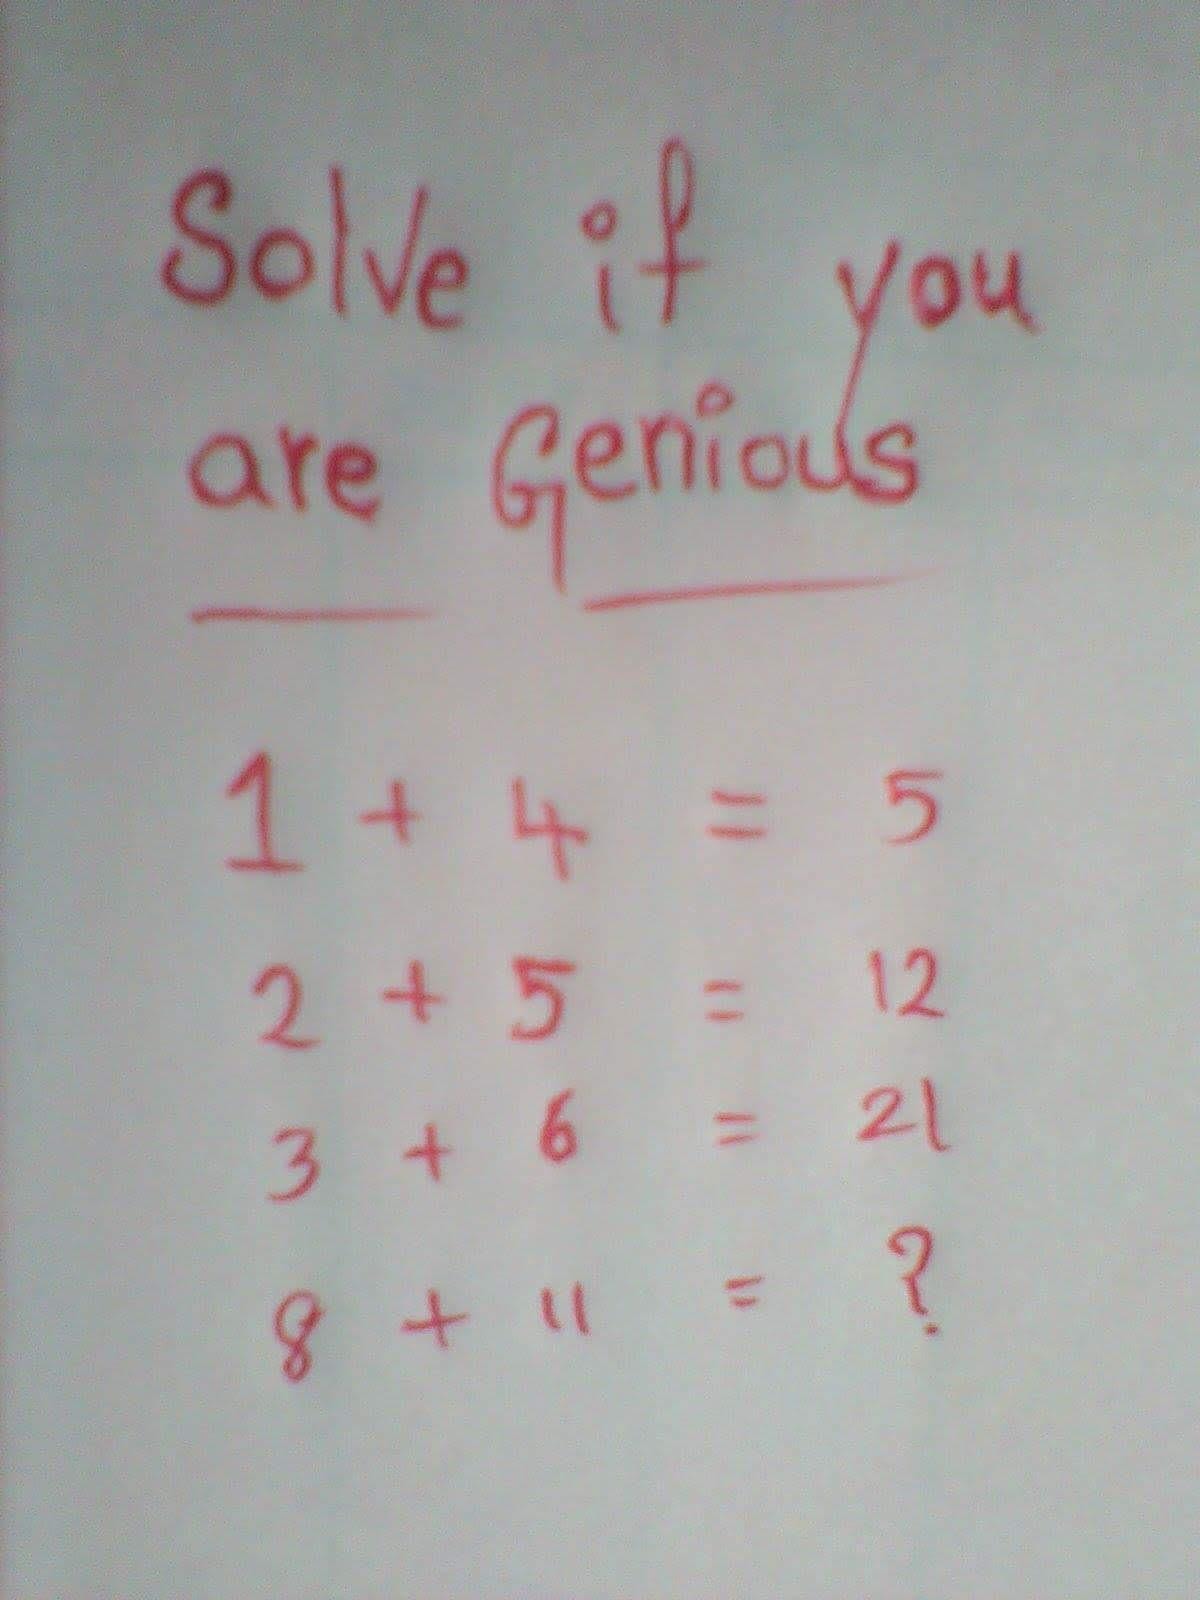 Solve if you
are Genious
1 + 4 = 5
2 + 5 = 12
3 + 6 = 21
8 + 11 = ?